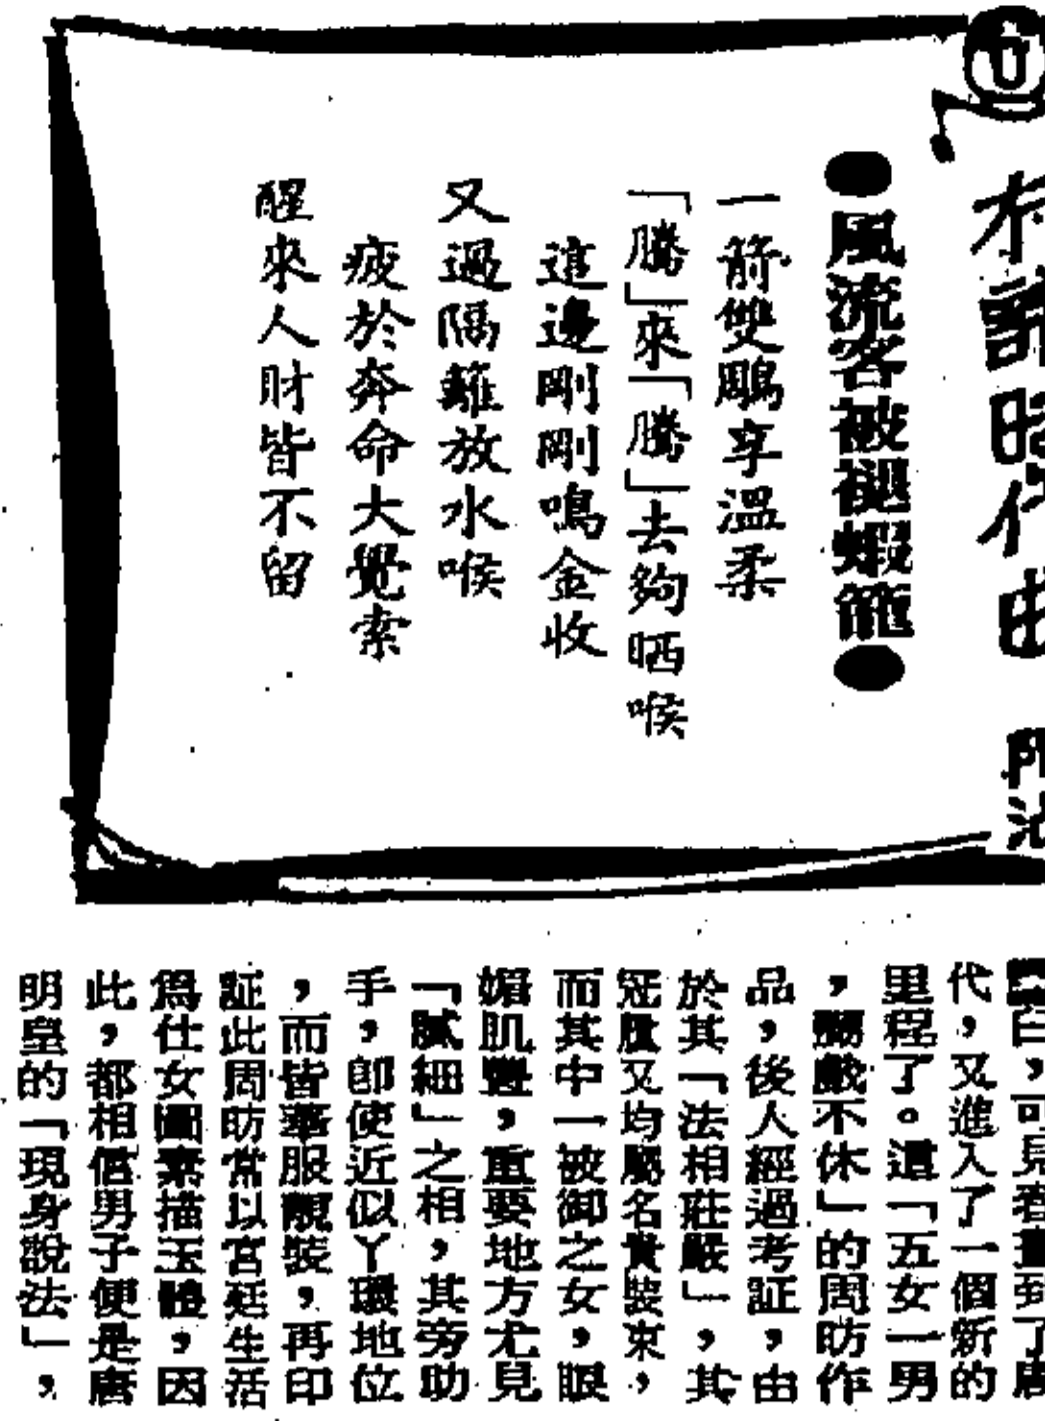 ●風流客被褪蝦籠●
一箭雙鵰享溫柔
「騰」來「騰」去夠晒喉
這邊剛剛鳴金收
又過隔籬放水喉
疲於奔命大覺索
醒來人財皆不留
白，可見春畫到了唐
代，又進入了一個新的
里程了。這「五女一男
，嬲戲不休」的周昉作
品，後人經過考証，由
於其「法相莊嚴」，其
冠服又均屬名貴裝束，
而其中一被御之女，眼
媚肌豐，重要地方尤見
「膩細」之相，其旁助
手，即使近似丫環地位
，而皆華服靚裝，再印
証此周昉常以宮廷生活
爲仕女圖素描玉體，因
此，都相信男子便是唐
明皇的「現身說法」，